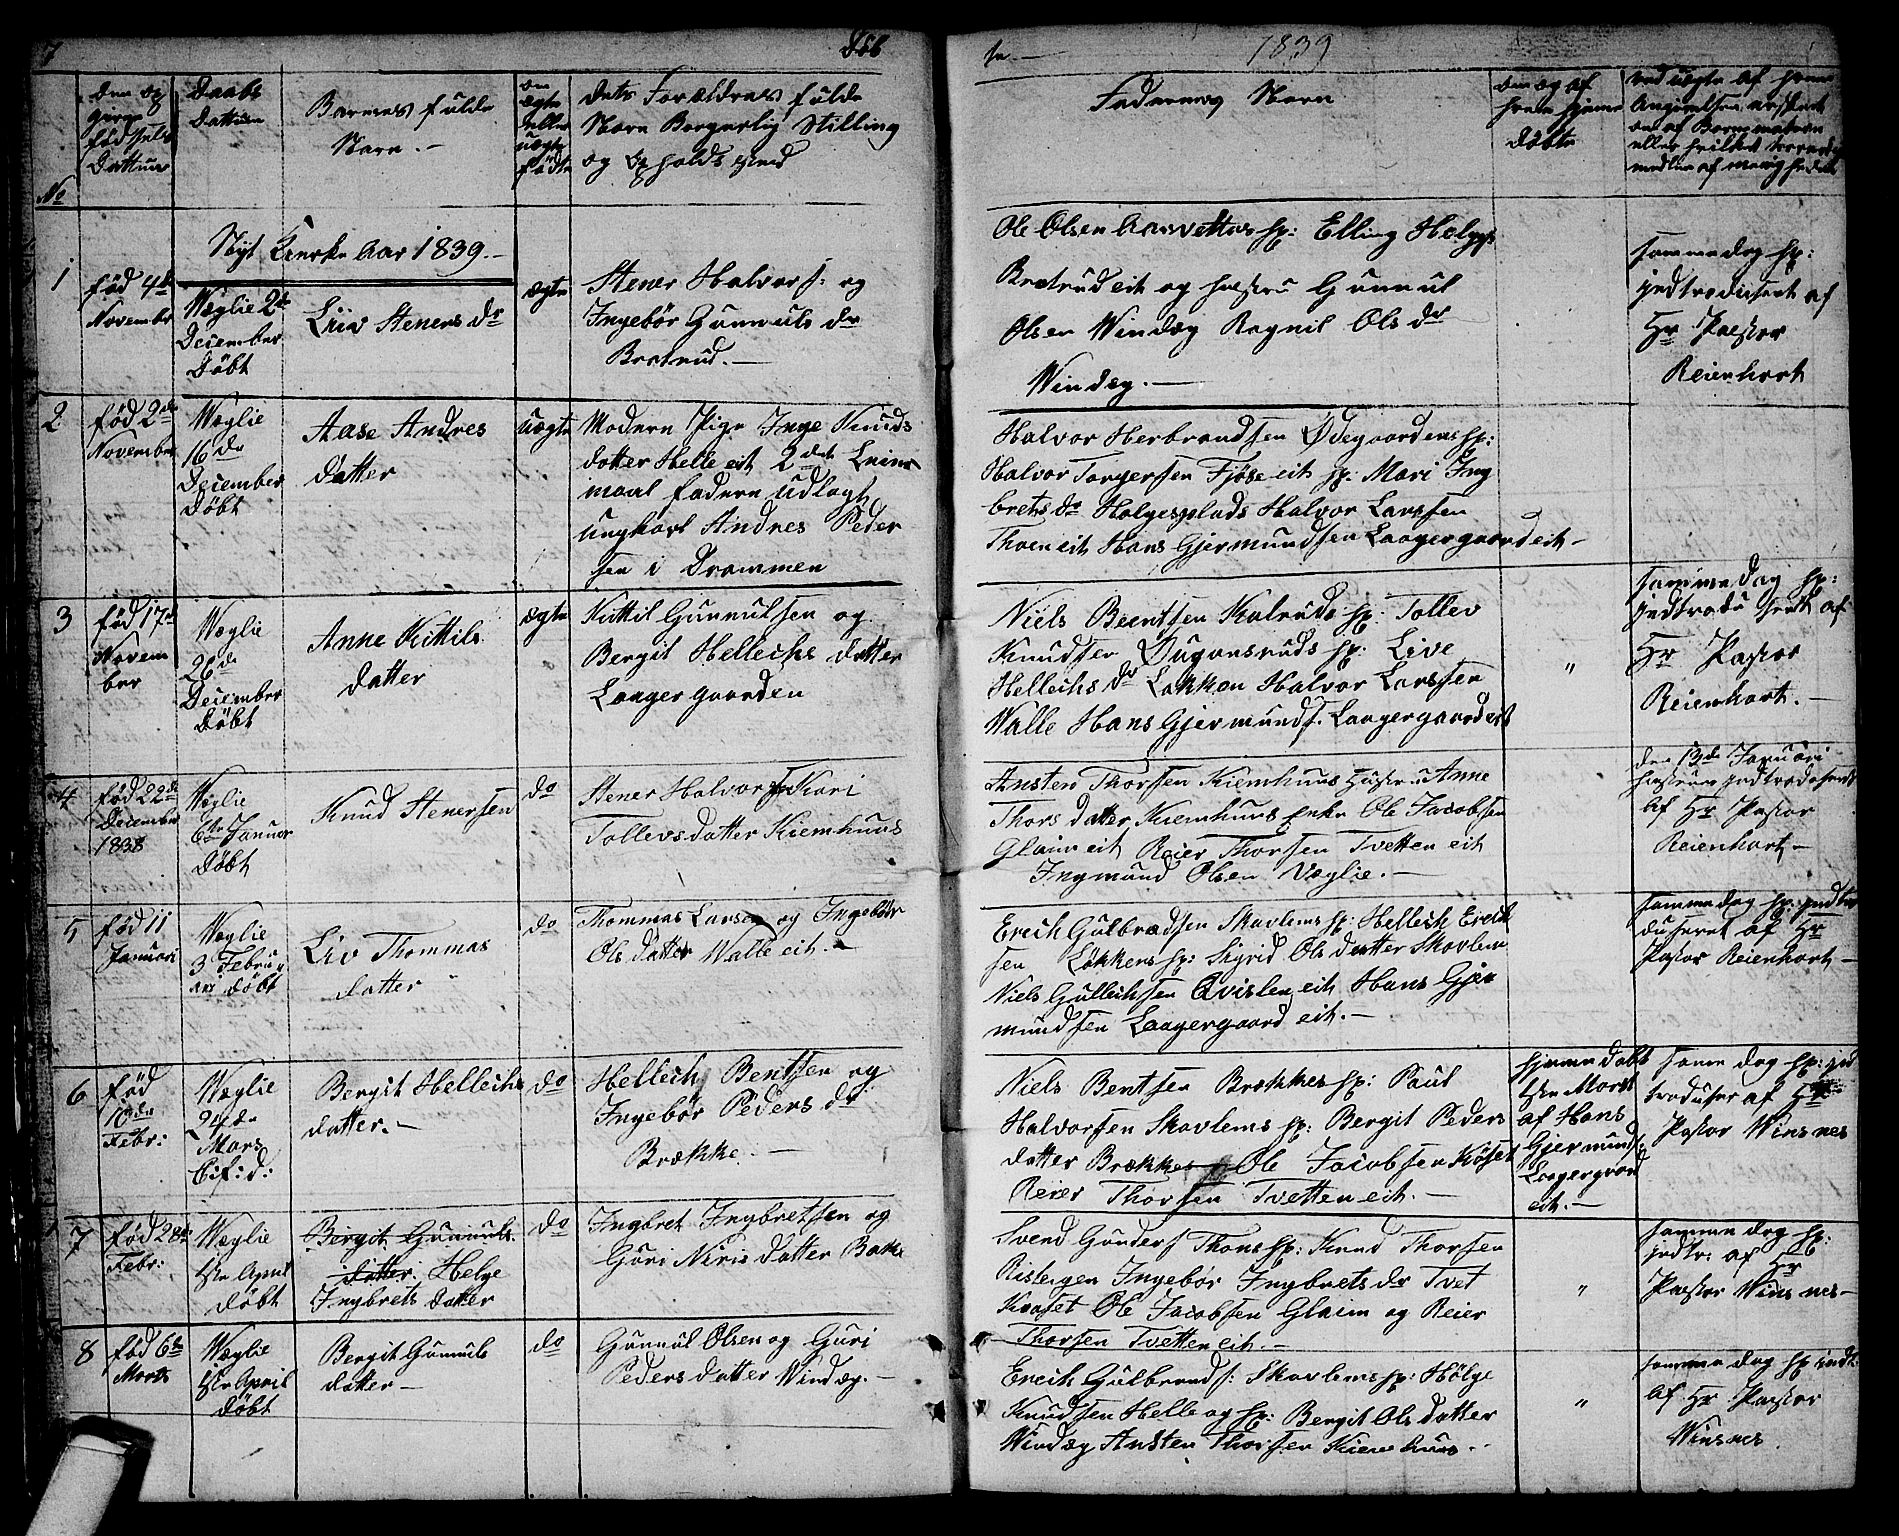 7
Døb
te.—
1839
No
den og
givne
fødsels
Dattum
Daabs
Dattum
Barnets fulde
Navn.—
om
ægte
eller
uægte
fødte
dets Forældres fulde
Navn Borgerlig Stilling
og Opholds sted
Faderenes Navn
om og af
hvem hjeme
døbte
Nyt Kierke Aar 1839.—
1
født 4de
November
Wæglie 2de
December
Døbt
Liiv Steners dr
ægte
Stener Halvors: og
Ingebör Gunnuls dr
Bratrud.—
Ole Olsen Aasvettas sp: Elling Helges
Bratrud eit og hustru Gunnul
Olsen Windeg Ragnil Ols dr
Windeg.—
samme dag sp:
indtroduseret af
Hr Pastor
Reienhart
2
født 2de
November
Wæglie
16de
December
Døbt
Aase Andres
datter
uægte
Modern Pige Inge Knuds
datter Helle eit 2det Leier
maal faderen udlagt
ungkarl Andres Peder
sen i Drammen
Halvor Herbrandsen Ødegaardens sp:
Halvor Torgersen Fjøse eit sp. Mari Ing
brets dr Helgesplads Halvor Larssen
Thoen eit Hans Gjermundsen Laagergaard eit—
3
født 17de
Novem
ber
Wæglie
26de
December
Døbt
Anne Kittils
datter
ægte
Kittil Gunnulsen og
Bergit Hellechs datter
Laagergaarden
Niels Beentsen Kalruds sp: Tollev
Knudsen Øugonsruds sp: Live
Hellechs dr Løkken Halvor Larssen
Walle Hans Gjermunds. Laagergaard eit
"
samme dag sp:
indtrodusert af
Hr Pastor
Reienhart.—
4
født 22de
December
1838
Wæglie
6te Januar
Døbt
Knud Stenersen
do
Stener Halvors: Kari
Tollevsdatter Kiemhuus
Ansten Thorsen Kiemhuus Hustru Anne
Thors datter Kiemhuus Enke Ole Jacobsen
Glaim eit Reier Thorsen Tvetten eit
Ingmund Olsen Væglie.—
den 13de Januari
hustruen indtrodusert
af Hr Pastor
Reienhart—
5
født 11
Januari
Wæglie
3 Febru
ari døbt
Liv Thommas
datter
do
Thommas Larsen og Ingebör
Ols datter Walle eit.—
Erich Gulbrandsen Skavlems sp: Hellech Erich
sen Løkkens sp: Sigrid Ols datter Skavlem
Niels Gullechsen Qvislen eit Hans Gjer
mundsen Laagergaard eit.—
samme dag sp: indtro
duseret af Hr
Pastor Reienhart—
6
født
10de
Febr:
Wæglie
24de
Mars
Bif: d:
Bergit Hellechs
datter.—
do
Hellech Bentsen og
Ingebör Peders dr
Brække.—
Niels Bentsen Brækkes sp: Paul
Halvorsen Skavlems sp: Bergit Peders
datter Brække Ole Jacobsen Köset
Reier Thorsen Tvetten eit.—
hjeme døbt
af Hans
Gjermunds.
Laagergaard
eit.—
same dag sp: ind
troduser af Hr
Pastor Winsnes
7
født 28de
Febr:
Wæglie
1ste April
døbt
Bergit Gunnuls
datter. Helge
Ingbrets datter
do
Ingbret Ingbretsen og
Guri Niris datter Bakke
Svend Gunders Thons sp: Knud Thorsen
Ristegen Ingebör Ingbrets dr Tvet
Kraset Ole Jacobsen Glaim og Reier
Thorsen Tvetten eit.—
"
samme dag sp:
indtr: af Hr
Pastor Winsnes—
8
født 6te
Marts
Wæglie
1ste April
Døbt
Bergit Gunnuls
datter—
do
Gunnul Olsen og Guri
Peders datter Windeg.—
Erech Gulbrands: Skavlems sp: Hölge
Knudsen Helle og sp: Bergit Ols datter
Windeg Ansten Thorsen Kiemhuus..
"
samme dag sp indt:
af Hr Pastor
Winsnes